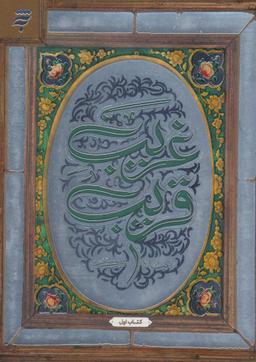 غریب
قریب
کتاب اول